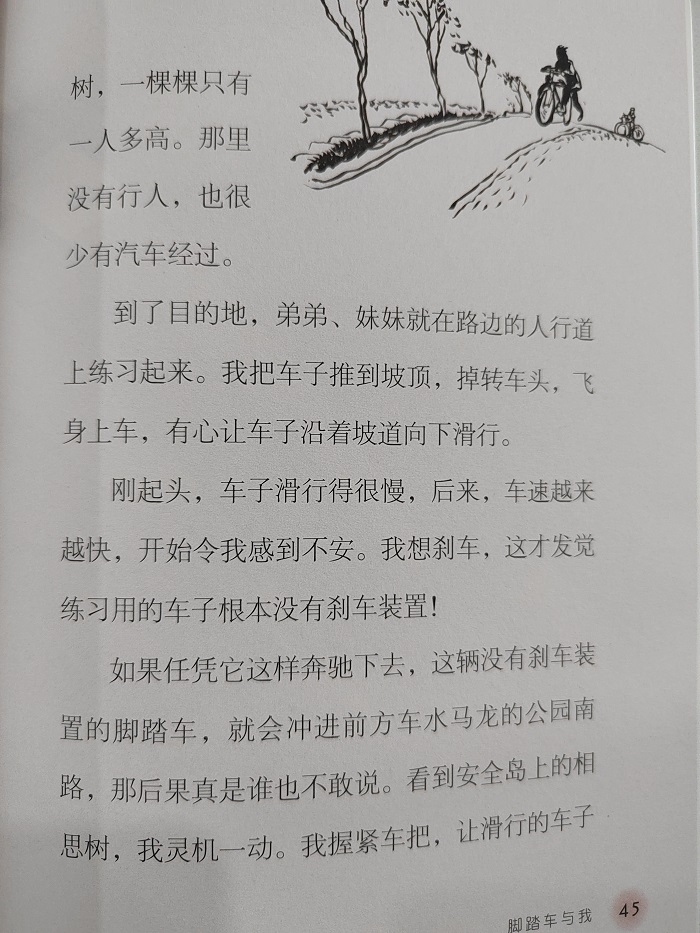 树，一棵棵只有
一人多高。那里
没有行人，也很
少有汽车经过。
到了目的地，弟弟、妹妹就在路边的人行道
上练习起来。我把车子推到坡顶，掉转车头，飞
身上车，有心让车子沿着坡道向下滑行。
刚起头，车子滑行得很慢，后来，车速越来
越快，开始令我感到不安。我想刹车，这才发觉
练习用的车子根本没有刹车装置！
如果任凭它这样奔驰下去，这辆没有刹车装
置的脚踏车，就会冲进前方车水马龙的公园南
路，那后果真是谁也不敢说。看到安全岛上的相
思树，我灵机一动。我握紧车把，让滑行的车子
脚踏车与我 45